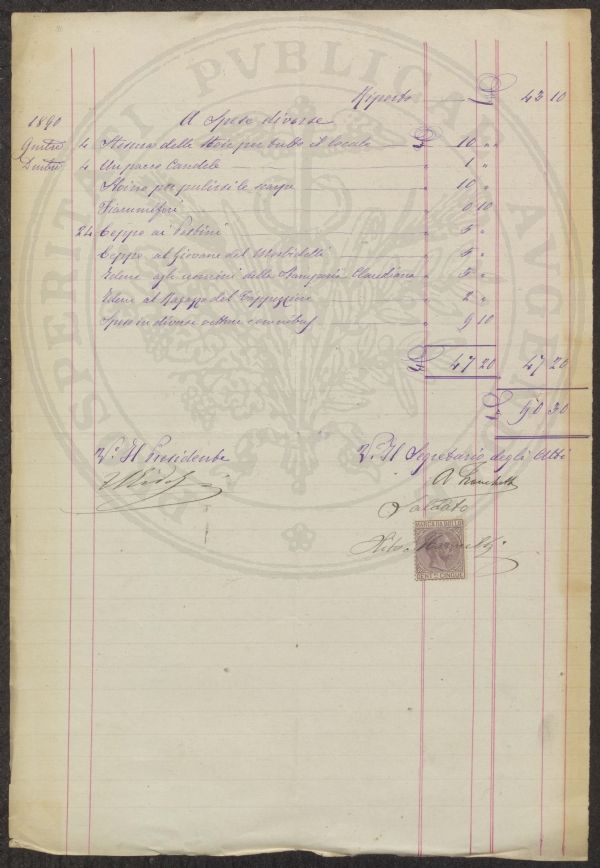 Riporto £ 43 10
1890 A Spese diverse
4 Stesura delle stoie per tutto il locale £ 10 "
Dmbre 4 Un pacco Candele " 1 "
per pulirsi le scarpe " 10 "
Fiammiferi " 0 10
24 Ceppo ai Postini " 5 "
Ceppo al Giovane del Morbidelli " 5 "
Idem agli uomini della Stamperia Claudiana " 5 "
Idem al Ragazzo del " 2 "
Spese in diverse vetture " 9 10
£ 47 20 47 20
£ 90 30
Vo. Il Presidente V. Il Segretario degli Atti
Saldato
MARCA DA BOLLO
CENT. CINQUE
SPERITATI PVBLICAE AVGEN